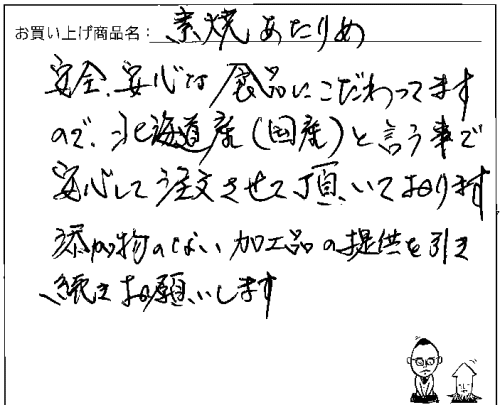 お買い上げ商品名：素焼あたりめ
安全、安心な食品にこだわってます
ので、北海道産(国産)と言う事で
安心して注文させて頂いております
添加物のない加工品の提供を引き
続きお願いします